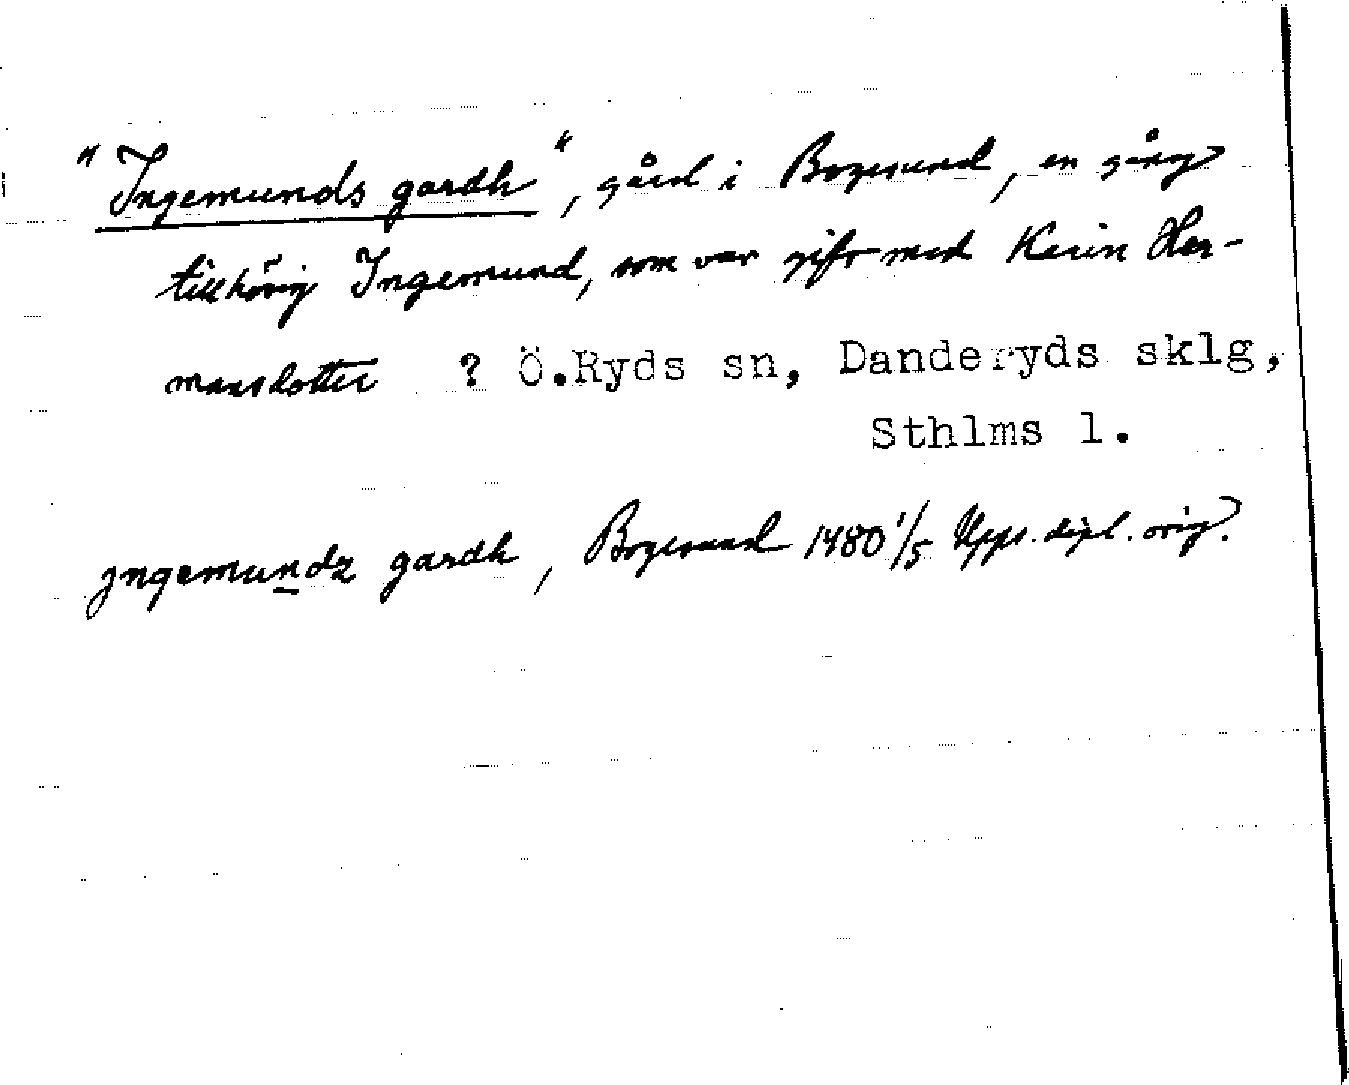 "Ingemunds gardh", gård i Bogesund, en gång
tillhörig Ingemund, som var gift med Kerin Her-
mansdotter ? Ö.Ryds sn, Danderyds sklg,
Sthlms l.
jngemundz gardh, Bogesund 1480 1/5 Upps. dipl. orig.